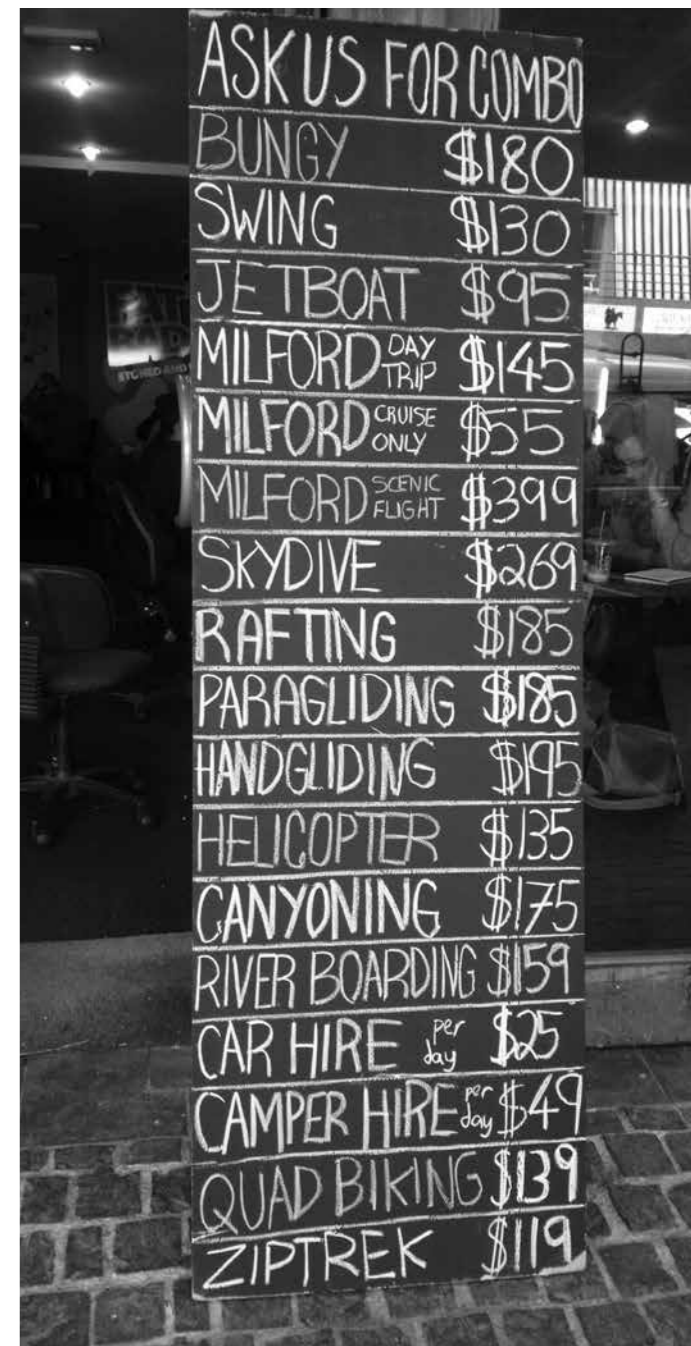 ASK US FOR COMBO
BUNGY $180
SWING $130
JETBOAT $95
MILFORD DAY TRIP $145
MILFORD CRUISE ONLY $55
MILFORD SCENIC FLIGHT $399
SKYDIVE $269
RAFTING $185
PARAGLIDING $185
HANDGLIDING $195
HELICOPTER $135
CANYONING $175
RIVER BOARDING $159
CAR HIRE per day $25
CAMPER HIRE per day $49
QUAD BIKING $139
ZIPTREK $119